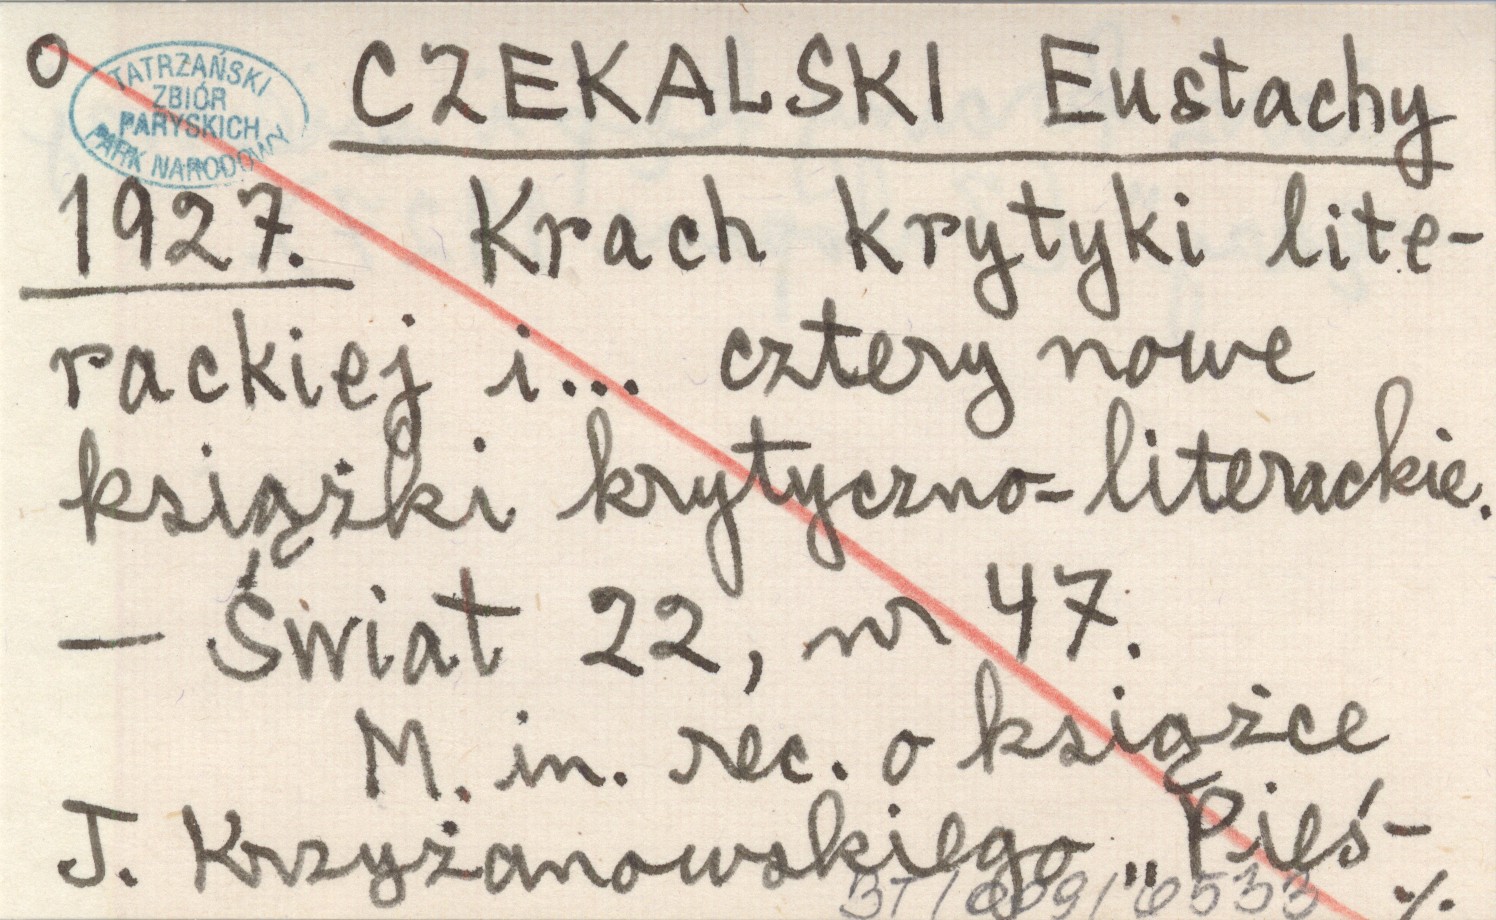 O
TATRZAŃSKI
ZBIÓR
PARYSKICH
PARK NARODOWY
CZEKALSKI Eustachy
1927. Krach krytyki lite-
rackiej i... cztery nowe
książki krytyczno-literackie.
— Świat 22, nr 47.
M. in. rec. o książce
J. Krzyżanowskiego „Pieś-
BT/009/6533
·/.